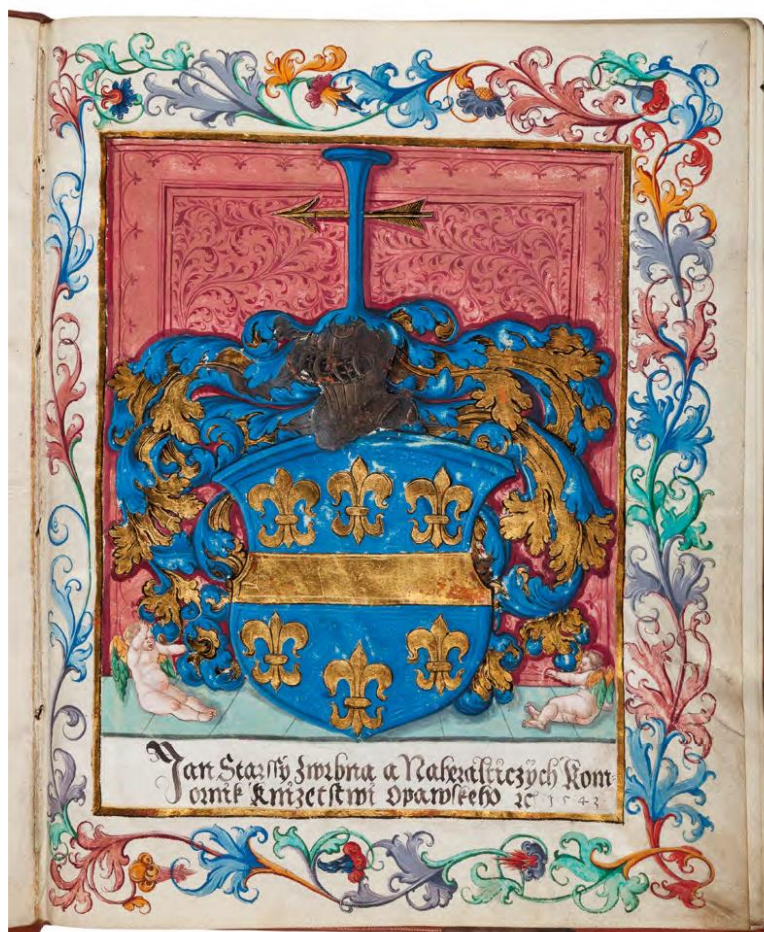 Jan Starssy Zwrbna a Nahxalticzych Kom-
ornik Knizetstwi Opawskeho ꝛc 1543